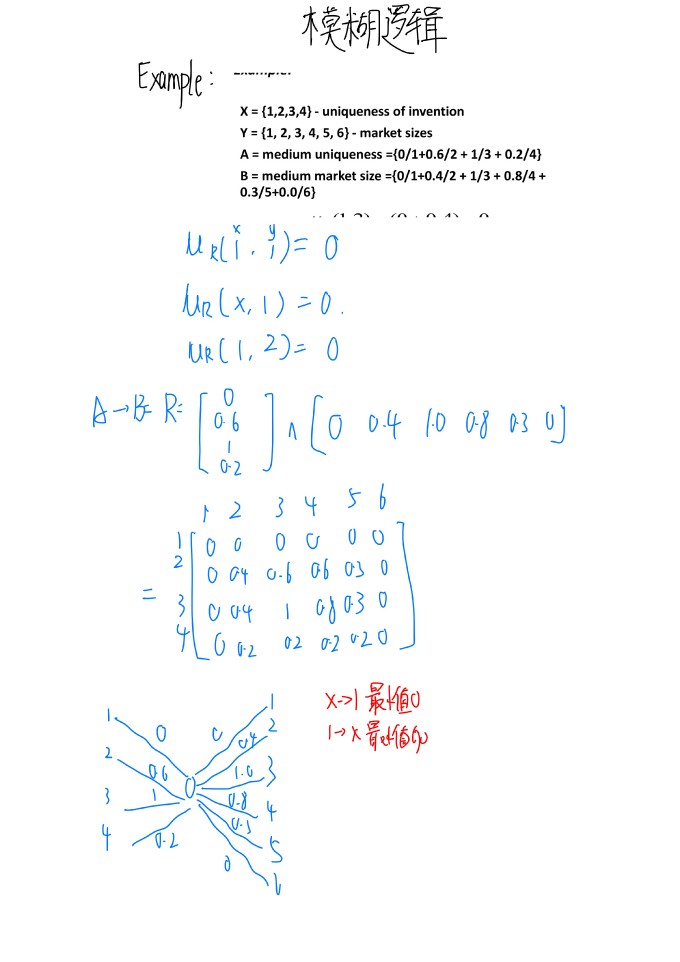 模糊逻辑
Example:
X = {1,2,3,4} - uniqueness of invention
Y = {1, 2, 3, 4, 5, 6} - market sizes
A = medium uniqueness ={0/1+0.6/2 + 1/3 + 0.2/4}
B = medium market size ={0/1+0.4/2 + 1/3 + 0.8/4 +
0.3/5+0.0/6}
x y
μR(1, 1) = 0
μR(x, 1) = 0.
μR(1, 2) = 0
A→B= R= [0 0.6 1 0.2] ∧ [0 0.4 1.0 0.8 0.3 0]
1 2 3 4 5 6
1 0 0 0 0 0 0
2 0 0.4 0.6 0.6 0.3 0
= 3 0 0.4 1 0.8 0.3 0
4 0 0.2 0.2 0.2 0.2 0
x→1 最大值0
1→x 最大值
1 0 0 1
2 0.6 0.4 2
3 1 0 1.0 3
4 0.2 0.8 4
0.3 5
0 6